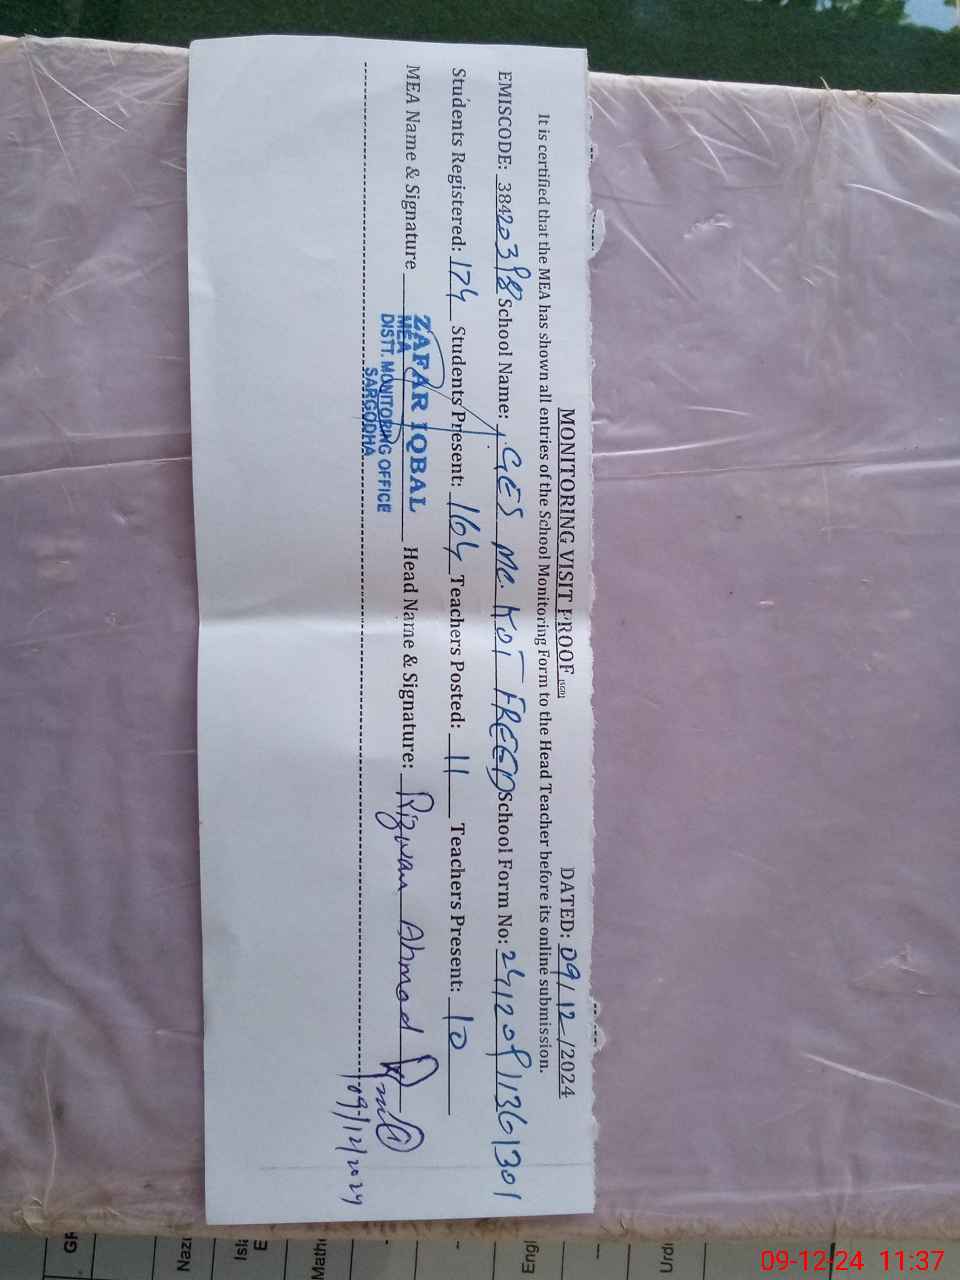 MONITORING VISIT PROOF [SGD] DATED: 09/12/2024
It is certified that the MEA has shown all entries of the School Monitoring Form to the Head Teacher before its online submission.
EMISCODE: 38420398 School Name: GES MC. KOT FREED School Form No: 24120911361301
Students Registered: 174 Students Present: 164 Teachers Posted: 11 Teachers Present: 10
MEA Name & Signature Head Name & Signature: Rizwan Ahmad
ZAFAR IQBAL
MEA
DISTT. MONITORING OFFICE
SARGODHA
09/12/2024
Urdu
Engl
Math
Isla
E
Nazi
09-12-24 11:37